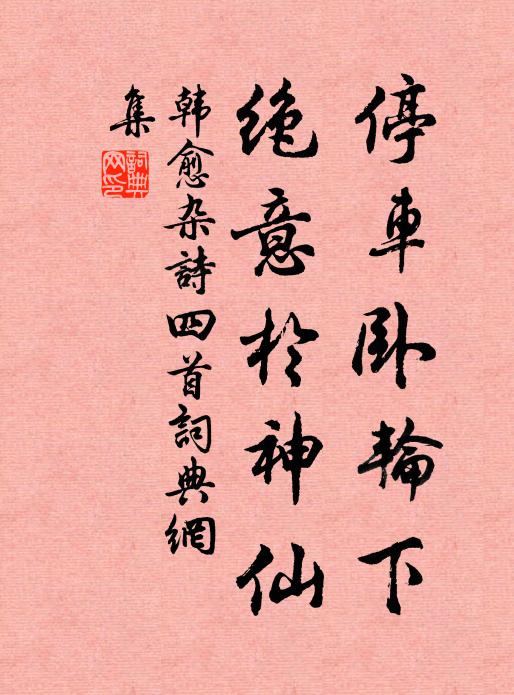 停車卧輪下
绝意於神仙
韩愈杂詩四首詞典網
集
詞典网印